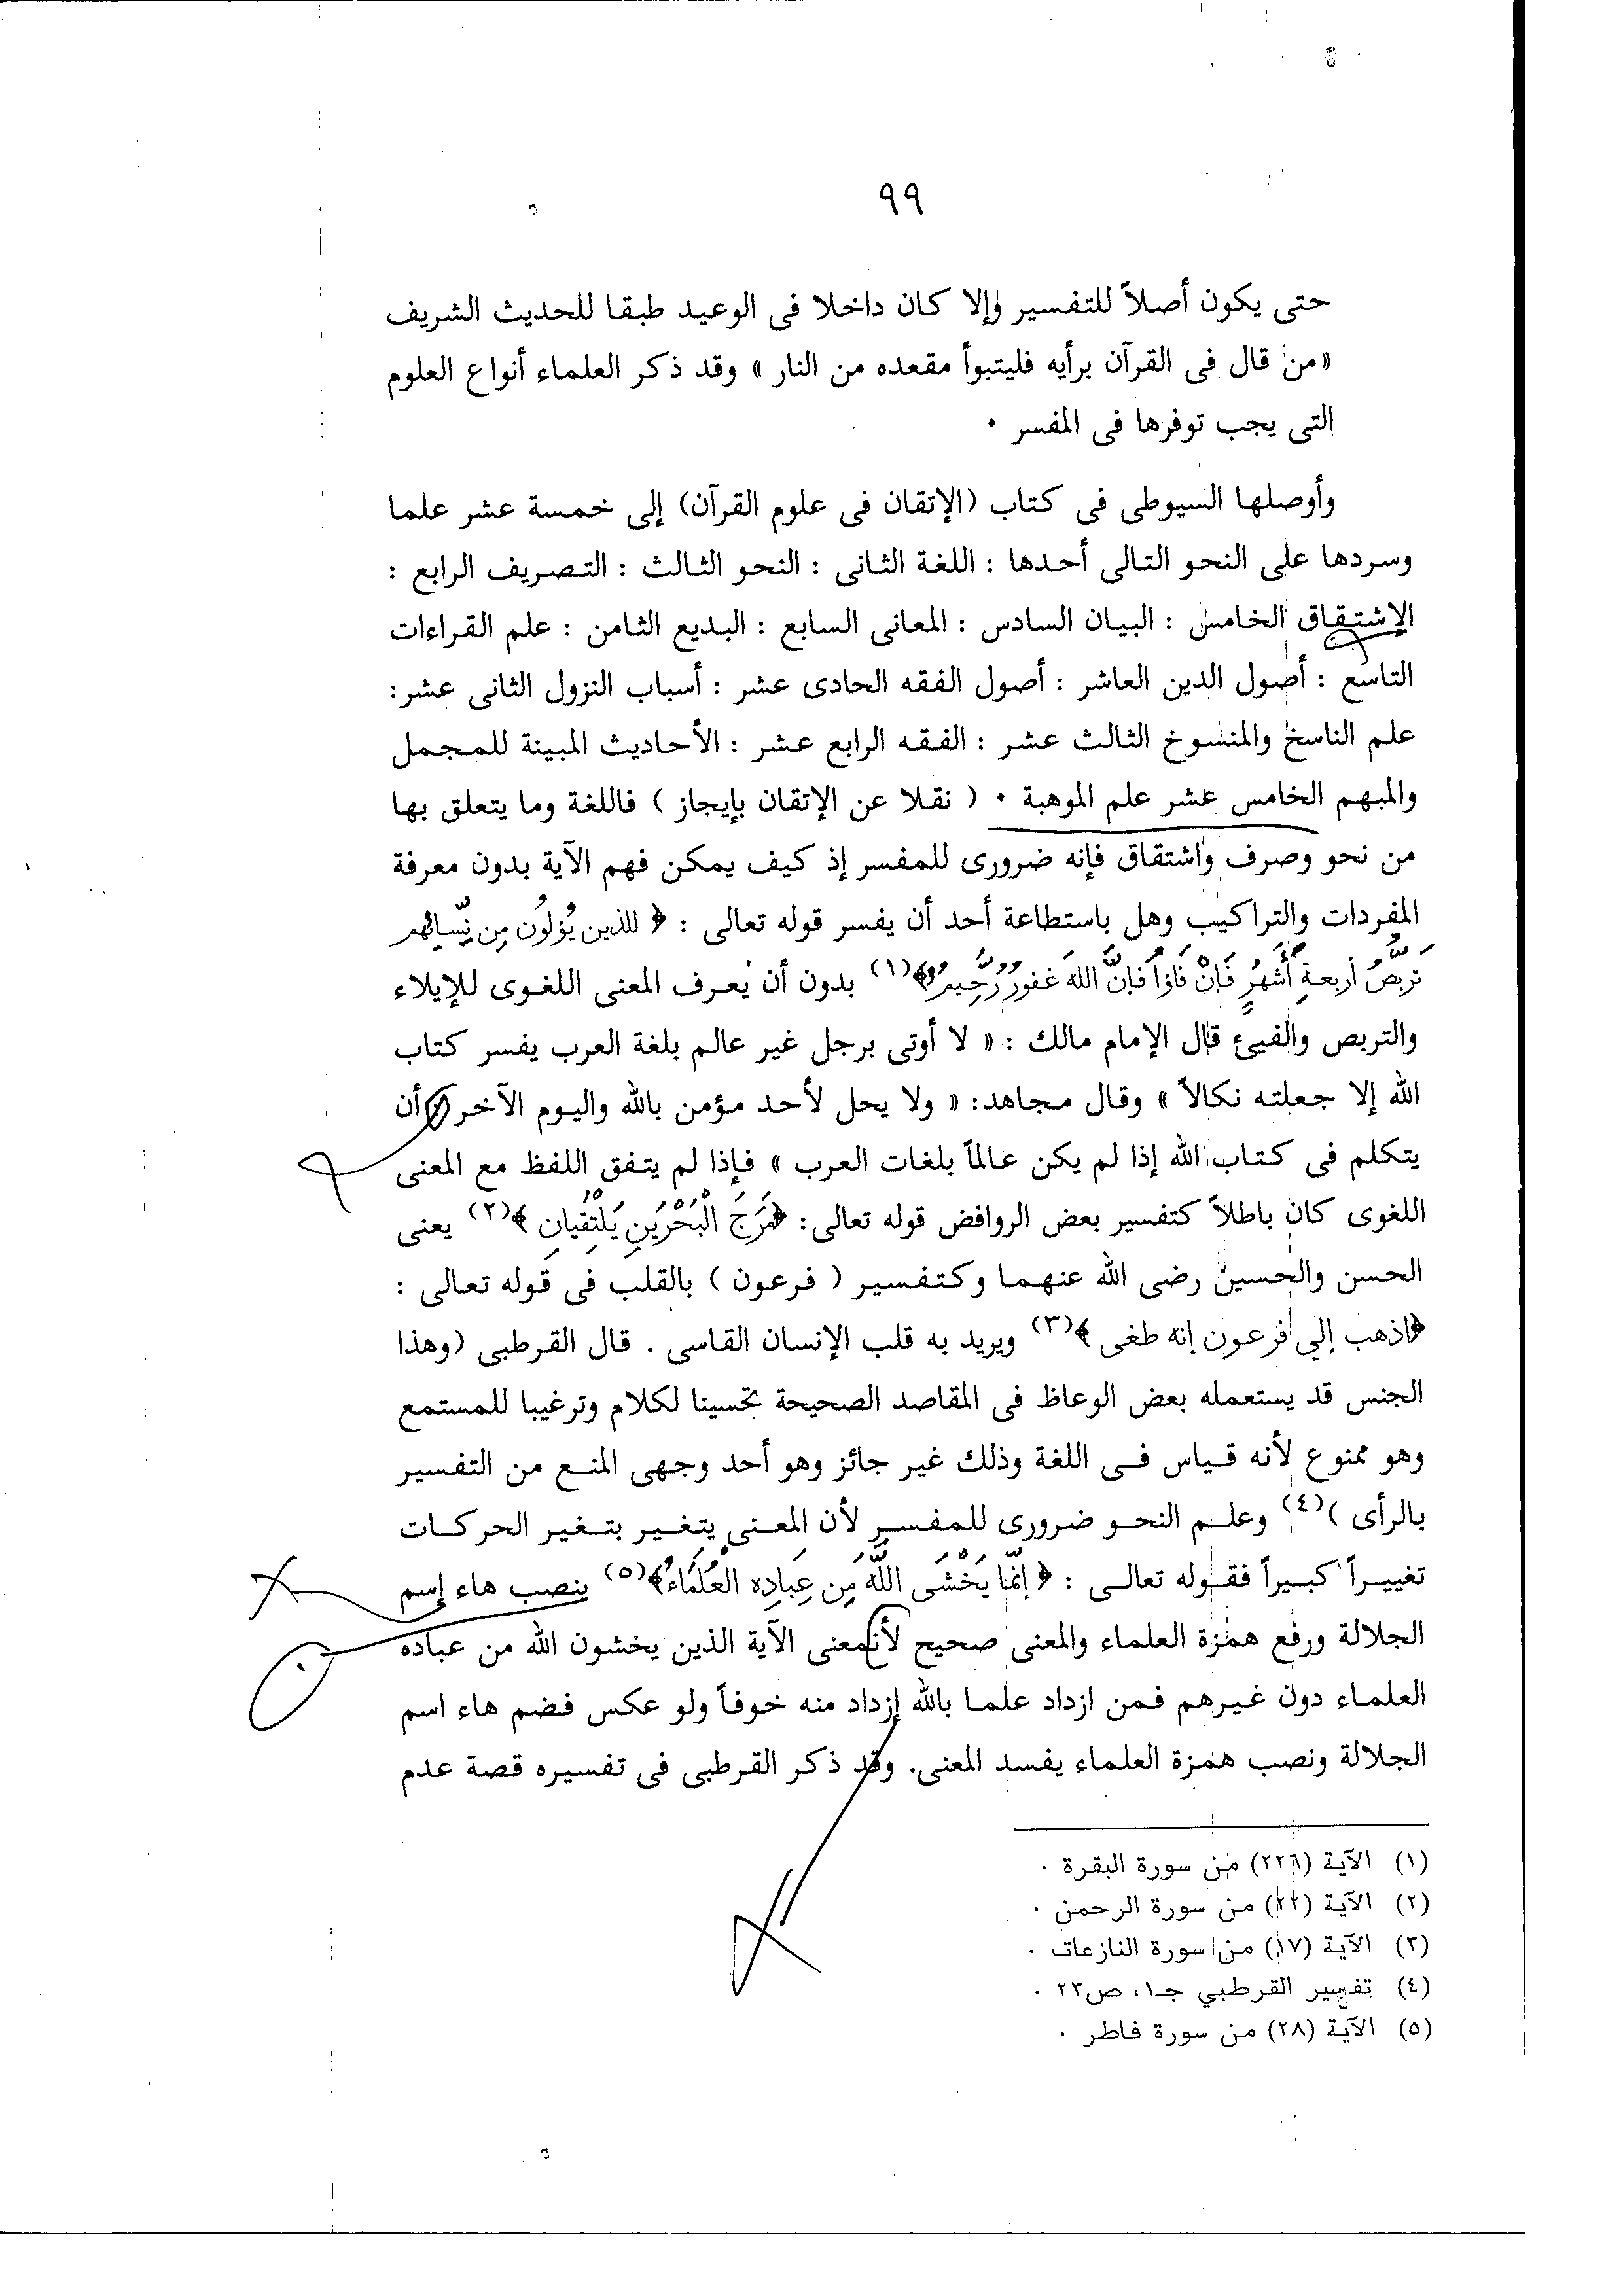 ٩٩
حتى يكون أصلاً للتفسير وإلا كان داخلا فى الوعيد طبقا للحديث الشريف
«من قال فى القرآن برأيه فليتبوأ مقعده من النار» وقد ذكر العلماء أنواع العلوم
التى يجب توفرها فى المفسر ٠
وأوصلها السيوطى فى كتاب (الإتقان فى علوم القرآن) إلى خمسة عشر علما
وسردها على النحو التالى أحدها : اللغة الثانى : النحو الثالث : التصريف الرابع :
الإشتقاق الخامس : البيان السادس : المعانى السابع : البديع الثامن : علم القراءات
التاسع : أصول الدين العاشر : أصول الفقه الحادى عشر : أسباب النزول الثانى عشر:
علم الناسخ والمنسوخ الثالث عشر : الفقه الرابع عشر : الأحاديث المبينة للمجمل
والمبهم الخامس عشر علم الموهبة ٠ ( نقلا عن الإتقان بإيجاز ) فاللغة وما يتعلق بها
من نحو وصرف واشتقاق فإنه ضرورى للمفسر إذ كيف يمكن فهم الآية بدون معرفة
المفردات والتراكيب وهل باستطاعة أحد أن يفسر قوله تعالى : ﴿ للذين يُؤلُون مِن نِّسائِهم
تَربُّصُ أربعةِ أَشْهُرٍ فَإنْ فَاؤا فَإنَّ اللهَ غفورٌ رَّحِيمٌ﴾(١) بدون أن يعرف المعنى اللغوى للإيلاء
والتربص والفيئ قال الإمام مالك : « لا أوتى برجل غير عالم بلغة العرب يفسر كتاب
الله إلا جعلته نكالاً » وقال مجاهد: « ولا يحل لأحد مؤمن بالله واليوم الآخر أن
يتكلم فى كتاب الله إذا لم يكن عالماً بلغات العرب » فإذا لم يتفق اللفظ مع المعنى
اللغوى كان باطلاً كتفسير بعض الروافض قوله تعالى: ﴿مَرَجَ الْبَحْرَينِ يَلْتِقيانِ ﴾(٢) يعنى
الحسن والحسين رضى الله عنهما وكتفسير ( فرعون ) بالقلب فى قوله تعالى :
﴿اذهب إلي فرعون إنه طغى ﴾(٣) ويريد به قلب الإنسان القاسى . قال القرطبى (وهذا
الجنس قد يستعمله بعض الوعاظ فى المقاصد الصحيحة تحسينا لكلام وترغيبا للمستمع
وهو ممنوع لأنه قياس فى اللغة وذلك غير جائز وهو أحد وجهى المنع من التفسير
بالرأى )(٤) وعلم النحو ضرورى للمفسر لأن المعنى يتغير بتغير الحركات
تغييراً كبيراً فقوله تعالى : ﴿ إنمّا يَخْشَى اللَّهَ مِن عِبادِه الْعُلَمَاءُ﴾(٥) ينصب هاء إسم
الجلالة ورفع همزة العلماء والمعنى صحيح لأن معنى الآية الذين يخشون الله من عباده
العلماء دون غيرهم فمن ازداد علما بالله إزداد منه خوفاً ولو عكس فضم هاء اسم
الجلالة ونصب همزة العلماء يفسد المعنى. وقد ذكر القرطبى فى تفسيره قصة عدم
(١) الآية (٢٢٦) من سورة البقرة ٠
(٢) الآية (٢٢) من سورة الرحمن ٠
(٣) الآية (١٧) من سورة النازعات ٠
(٤) تفسير القرطبي جـ١، ص٢٣ ٠
(٥) الآية (٢٨) من سورة فاطر ٠